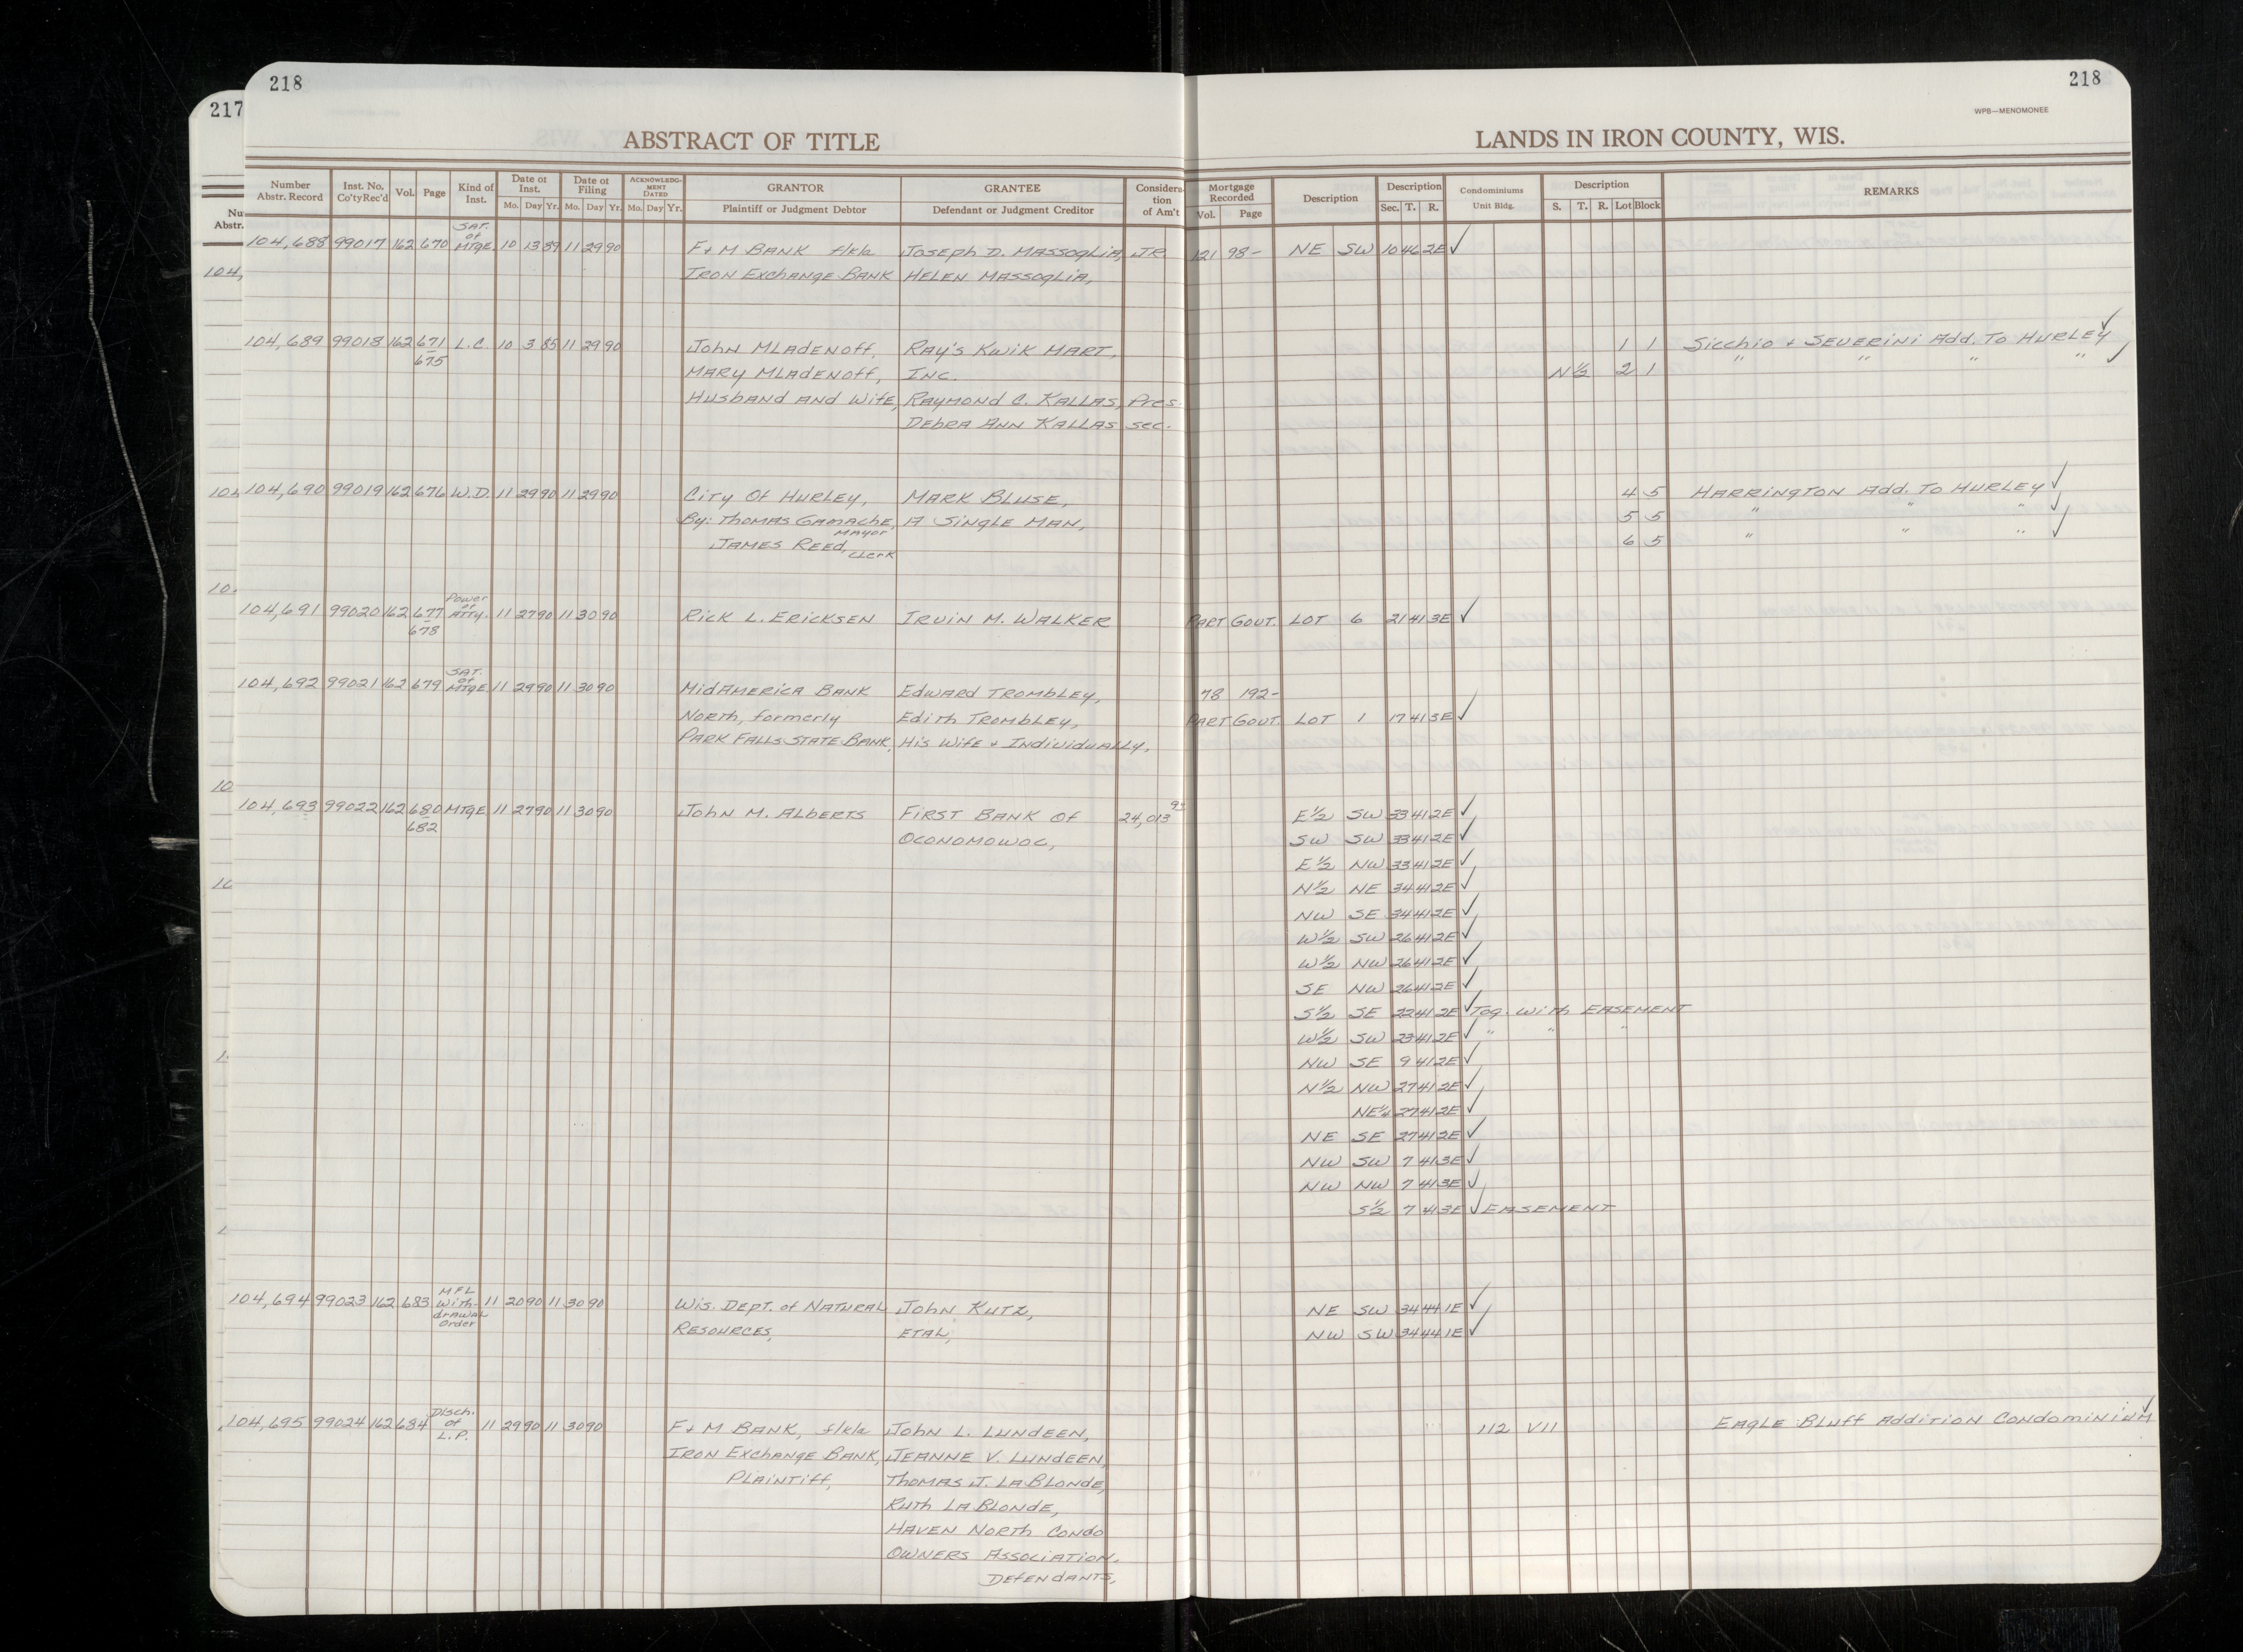 218
218
217
WPB—MENOMONEE
ABSTRACT OF TITLE
LANDS IN IRON COUNTY, WIS.
Number Abstr. Record | Inst. No. Co'ty Rec'd | Vol. | Page | Kind of Inst. | Date of Inst. Mo. Day Yr. | Date of Filing Mo. Day Yr. | ACKNOWLEDG-MENT DATED Mo. Day Yr. | GRANTOR Plaintiff or Judgment Debtor | GRANTEE Defendant or Judgment Creditor | Considera-tion of Am't | Mortgage Recorded Vol. Page | Description | Description Sec. T. R. | Condominiums Unit Bldg. | Description S. T. R. Lot Block | REMARKS
104,688 99017 162 670 SAT. of MTGE. 10 13 89 11 29 90 F & M BANK f/k/a Joseph D. MASSOGLIA, JR. 121 98- NE SW 10 46 2E ✓
IRON EXCHANGE BANK HELEN MASSOGLIA,
104,689 99018 162 671 L.C. 10 3 85 11 29 90 John MLADENOFF, RAY'S KWIK MART, 1 1 Sicchio & SEVERINI Add. To HURLEY ✓
675 MARY MLADENOFF, INC. N½ 2 1 " " " " ✓
HUSBAND AND WIFE, RAYMOND C. KALLAS, Pres.
DEBRA ANN KALLAS sec.
104,690 99019 162 676 W.D. 11 29 90 11 29 90 CITY OF HURLEY, MARK BLUSE, 4 5 HARRINGTON Add. To HURLEY ✓
By: THOMAS GAMACHE, Mayor A SINGLE MAN, 5 5 " " " ✓
JAMES REED, Clerk 6 5 " " " ✓
104,691 99020 162 677 Power of ATTY. 11 27 90 11 30 90 RICK L. ERICKSEN IRVIN M. WALKER PART GOVT. LOT 6 21 41 3E ✓
678
104,692 99021 162 679 SAT. of MTGE 11 29 90 11 30 90 MIDAMERICA BANK EDWARD TROMBLEY, 78 192-
NORTH, formerly EDITH TROMBLEY, PART GOVT. LOT 1 17 41 3E ✓
PARK FALLS STATE BANK, His Wife & INDIVIDUALLY,
104,693 99022 162 680 MTGE 11 27 90 11 30 90 John M. ALBERTS FIRST BANK OF 24,013 E½ SW 33 41 2E ✓
682 OCONOMOWOC, SW SW 33 41 2E ✓
E½ NW 33 41 2E ✓
N½ NE 34 41 2E ✓
NW SE 34 41 2E ✓
W½ SW 26 41 2E ✓
W½ NW 26 41 2E ✓
SE NW 26 41 2E ✓
S½ SE 22 41 2E ✓ Tog. with EASEMENT
W½ SW 23 41 2E ✓ " " "
NW SE 9 41 2E ✓
N½ NW 27 41 2E ✓
NE¼ 27 41 2E ✓
NE SE 27 41 2E ✓
NW SW 7 41 3E ✓
NW NW 7 41 3E ✓
S½ 7 41 3E ✓ EASEMENT
104,694 99023 162 683 MFL With-drawal Order 11 20 90 11 30 90 WIS. DEPT. of NATURAL John KUTZ, NE SW 34 44 1E ✓
RESOURCES, ETAL, NW SW 34 44 1E ✓
104,695 99024 162 684 Disch. of L.P. 11 29 90 11 30 90 F & M BANK, f/k/a John L. LUNDEEN, 112 VII EAGLE BLUFF ADDITION CONDOMINIUM ✓
IRON EXCHANGE BANK, JEANNE V. LUNDEEN,
PLAINTIFF, THOMAS J. LA BLONDE,
RUTH LA BLONDE,
HAVEN NORTH CONDO
OWNERS ASSOCIATION,
DEFENDANTS,